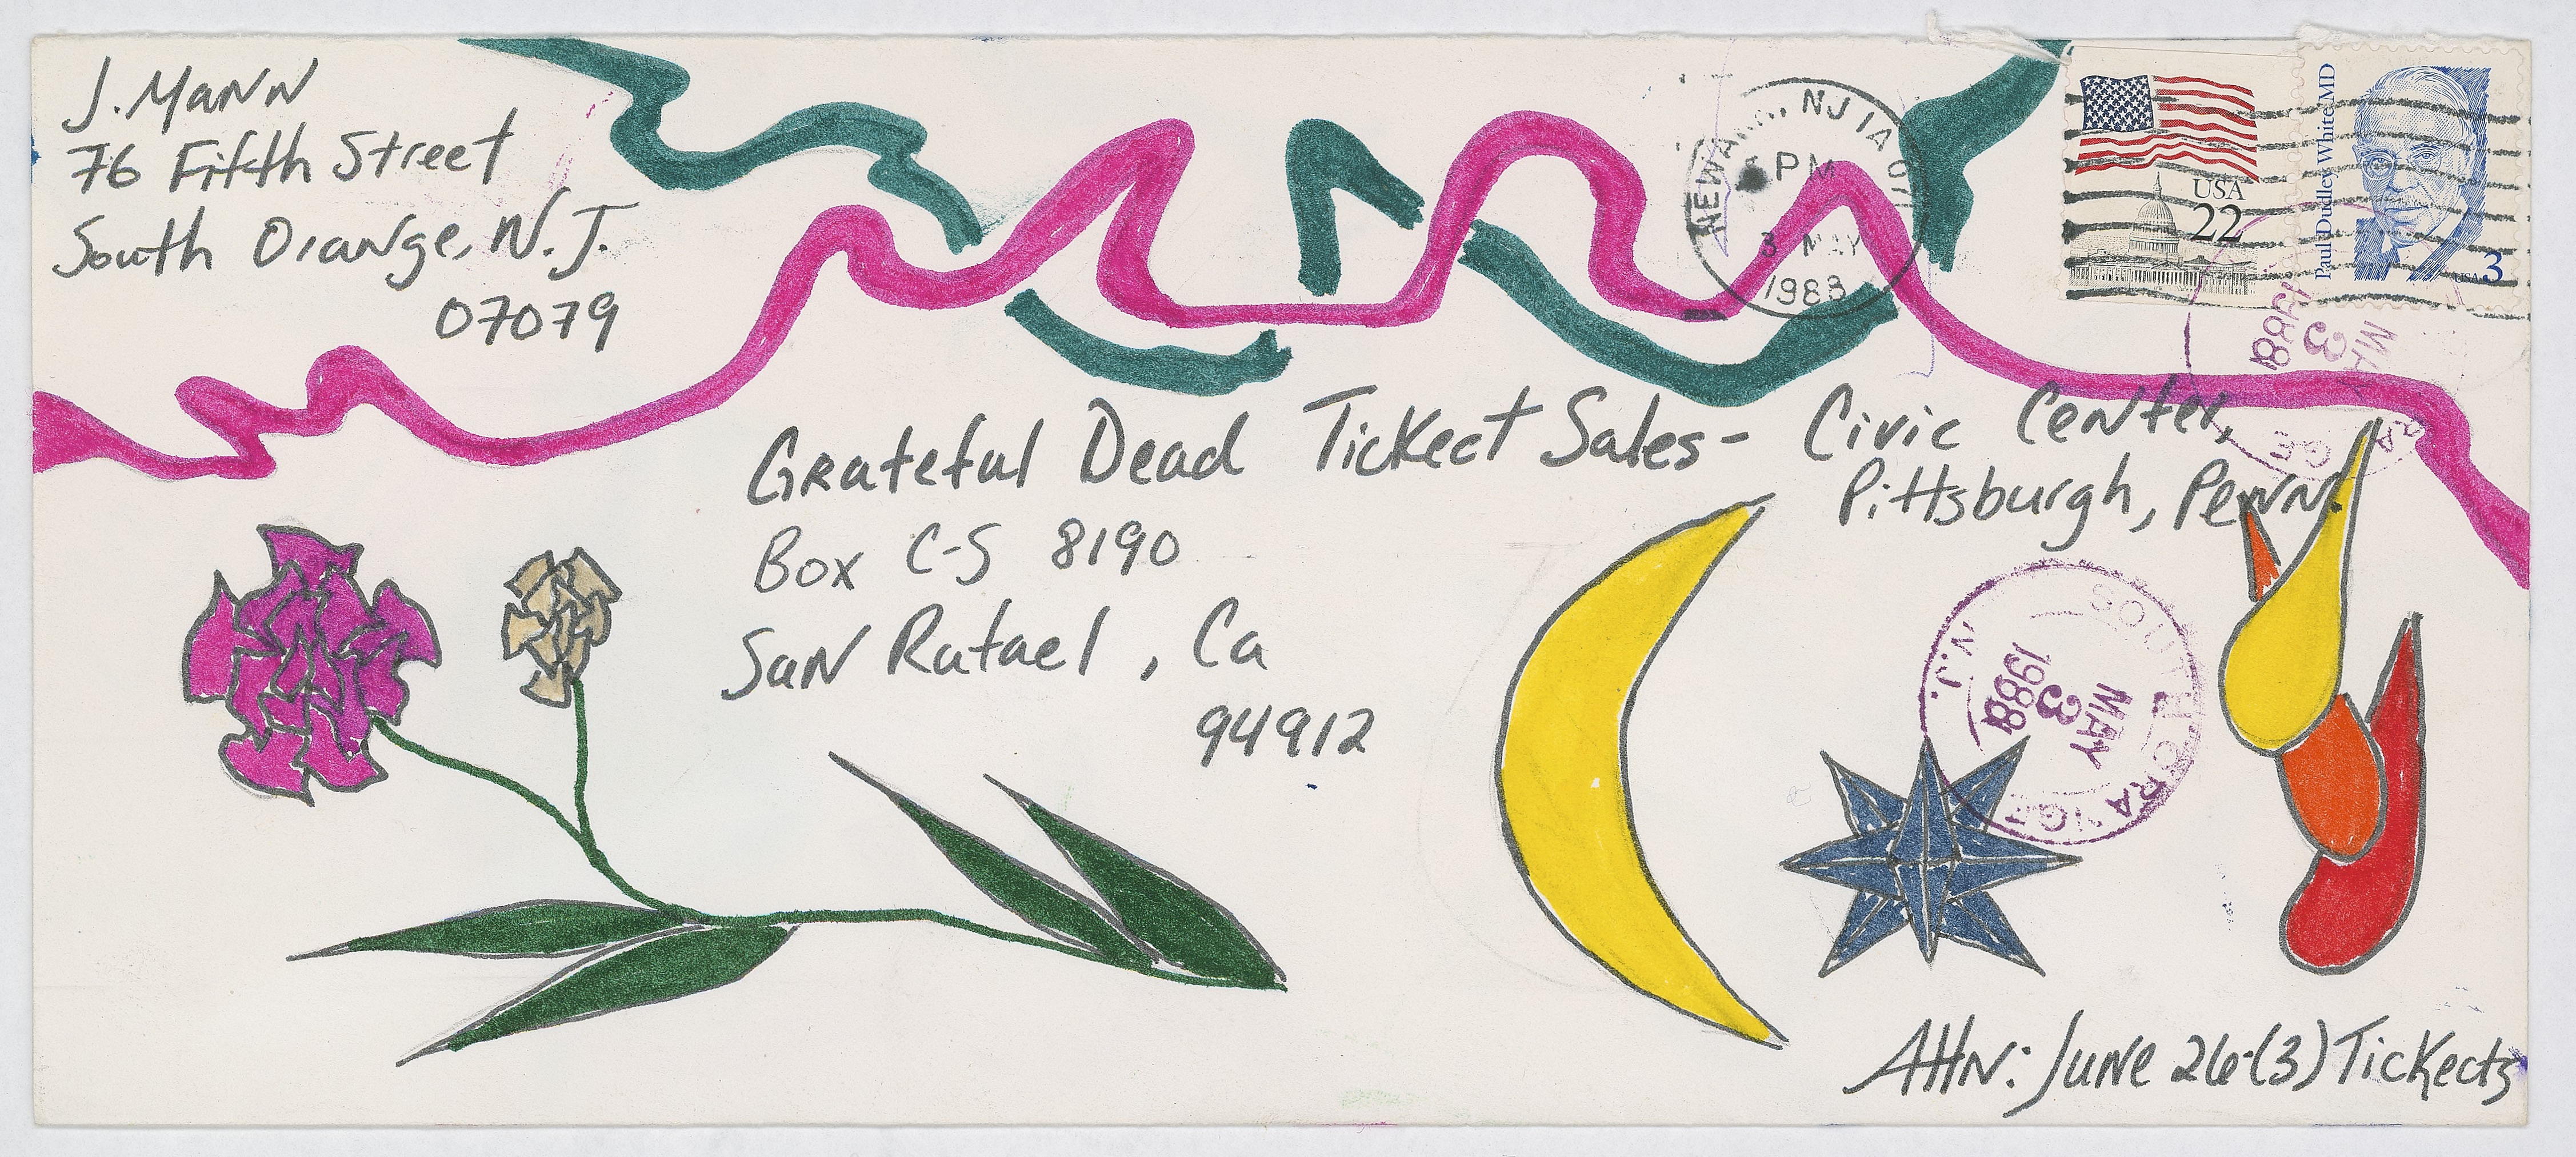 J. Mann
76 Fifth Street
South Orange, N.J.
07079
NJ
PM
3 MAY
1988
USA
22
Paul Dudley White MD
USA 3
MAY
3
1988
Grateful Dead Tickect Sales- Civic Center,
Pittsburgh, Penn.
Box C-S 8190
San Rafael, Ca
94912
SOUTH ORANGE
N.J.
MAY
3
1988
Attn: June 26-(3) Tickects